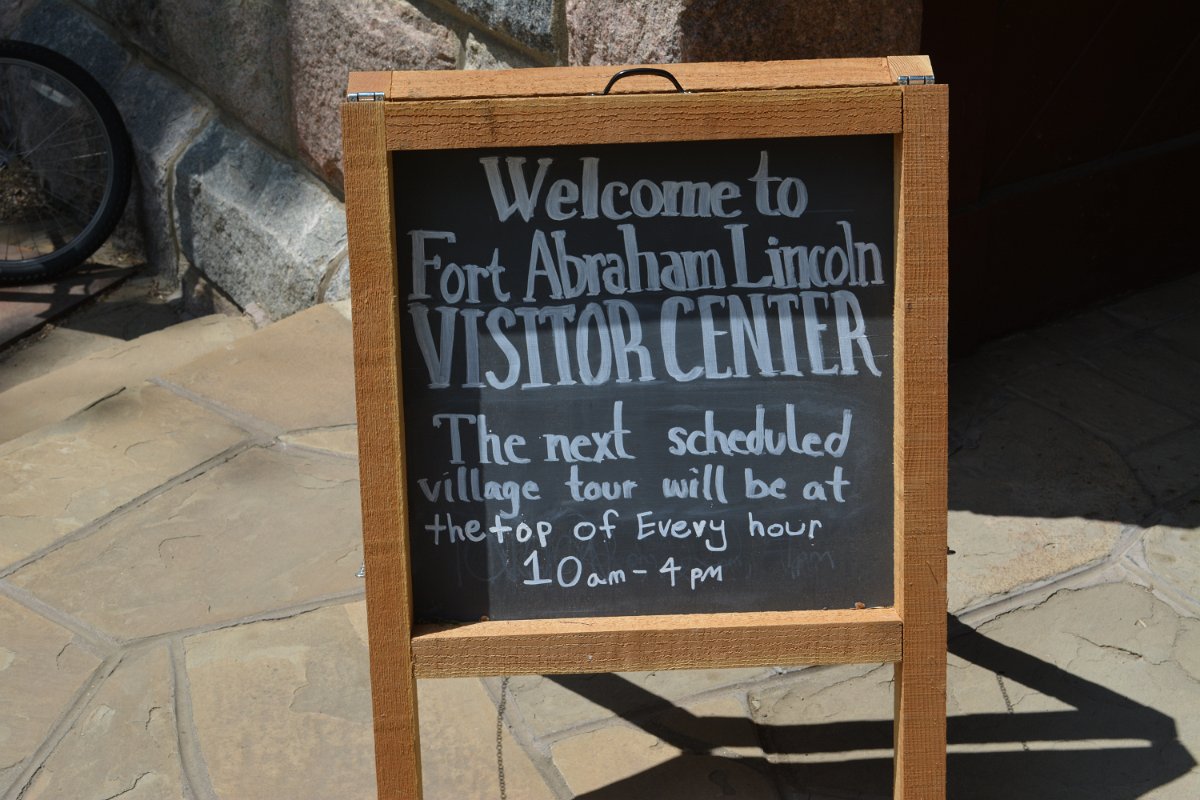 Welcome to
Fort Abraham Lincoln
VISITOR CENTER
The next scheduled
village tour will be at
the top of Every hour
10am - 4pm